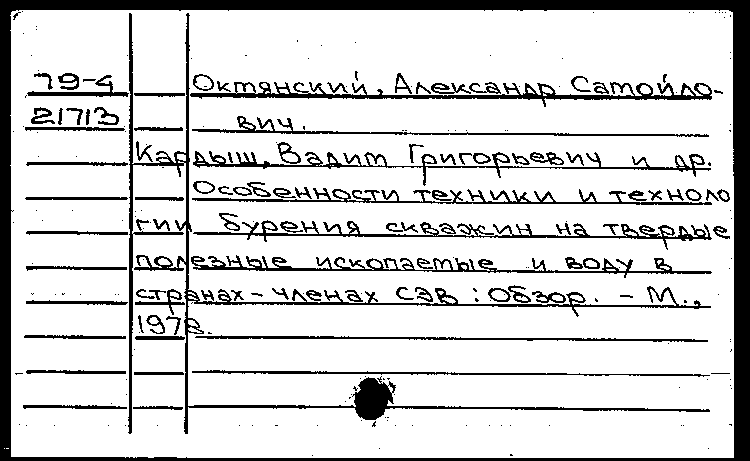 79-4 Октянский, Александр Самойло-
21713 вич.
Кардыш, Вадим Григорьевич и др.
Особенности техники и техноло
гии бурения скважин на твердые
полезные ископаемые и воду в
странах-членах СЭВ : Обзор. - М.,
1978.